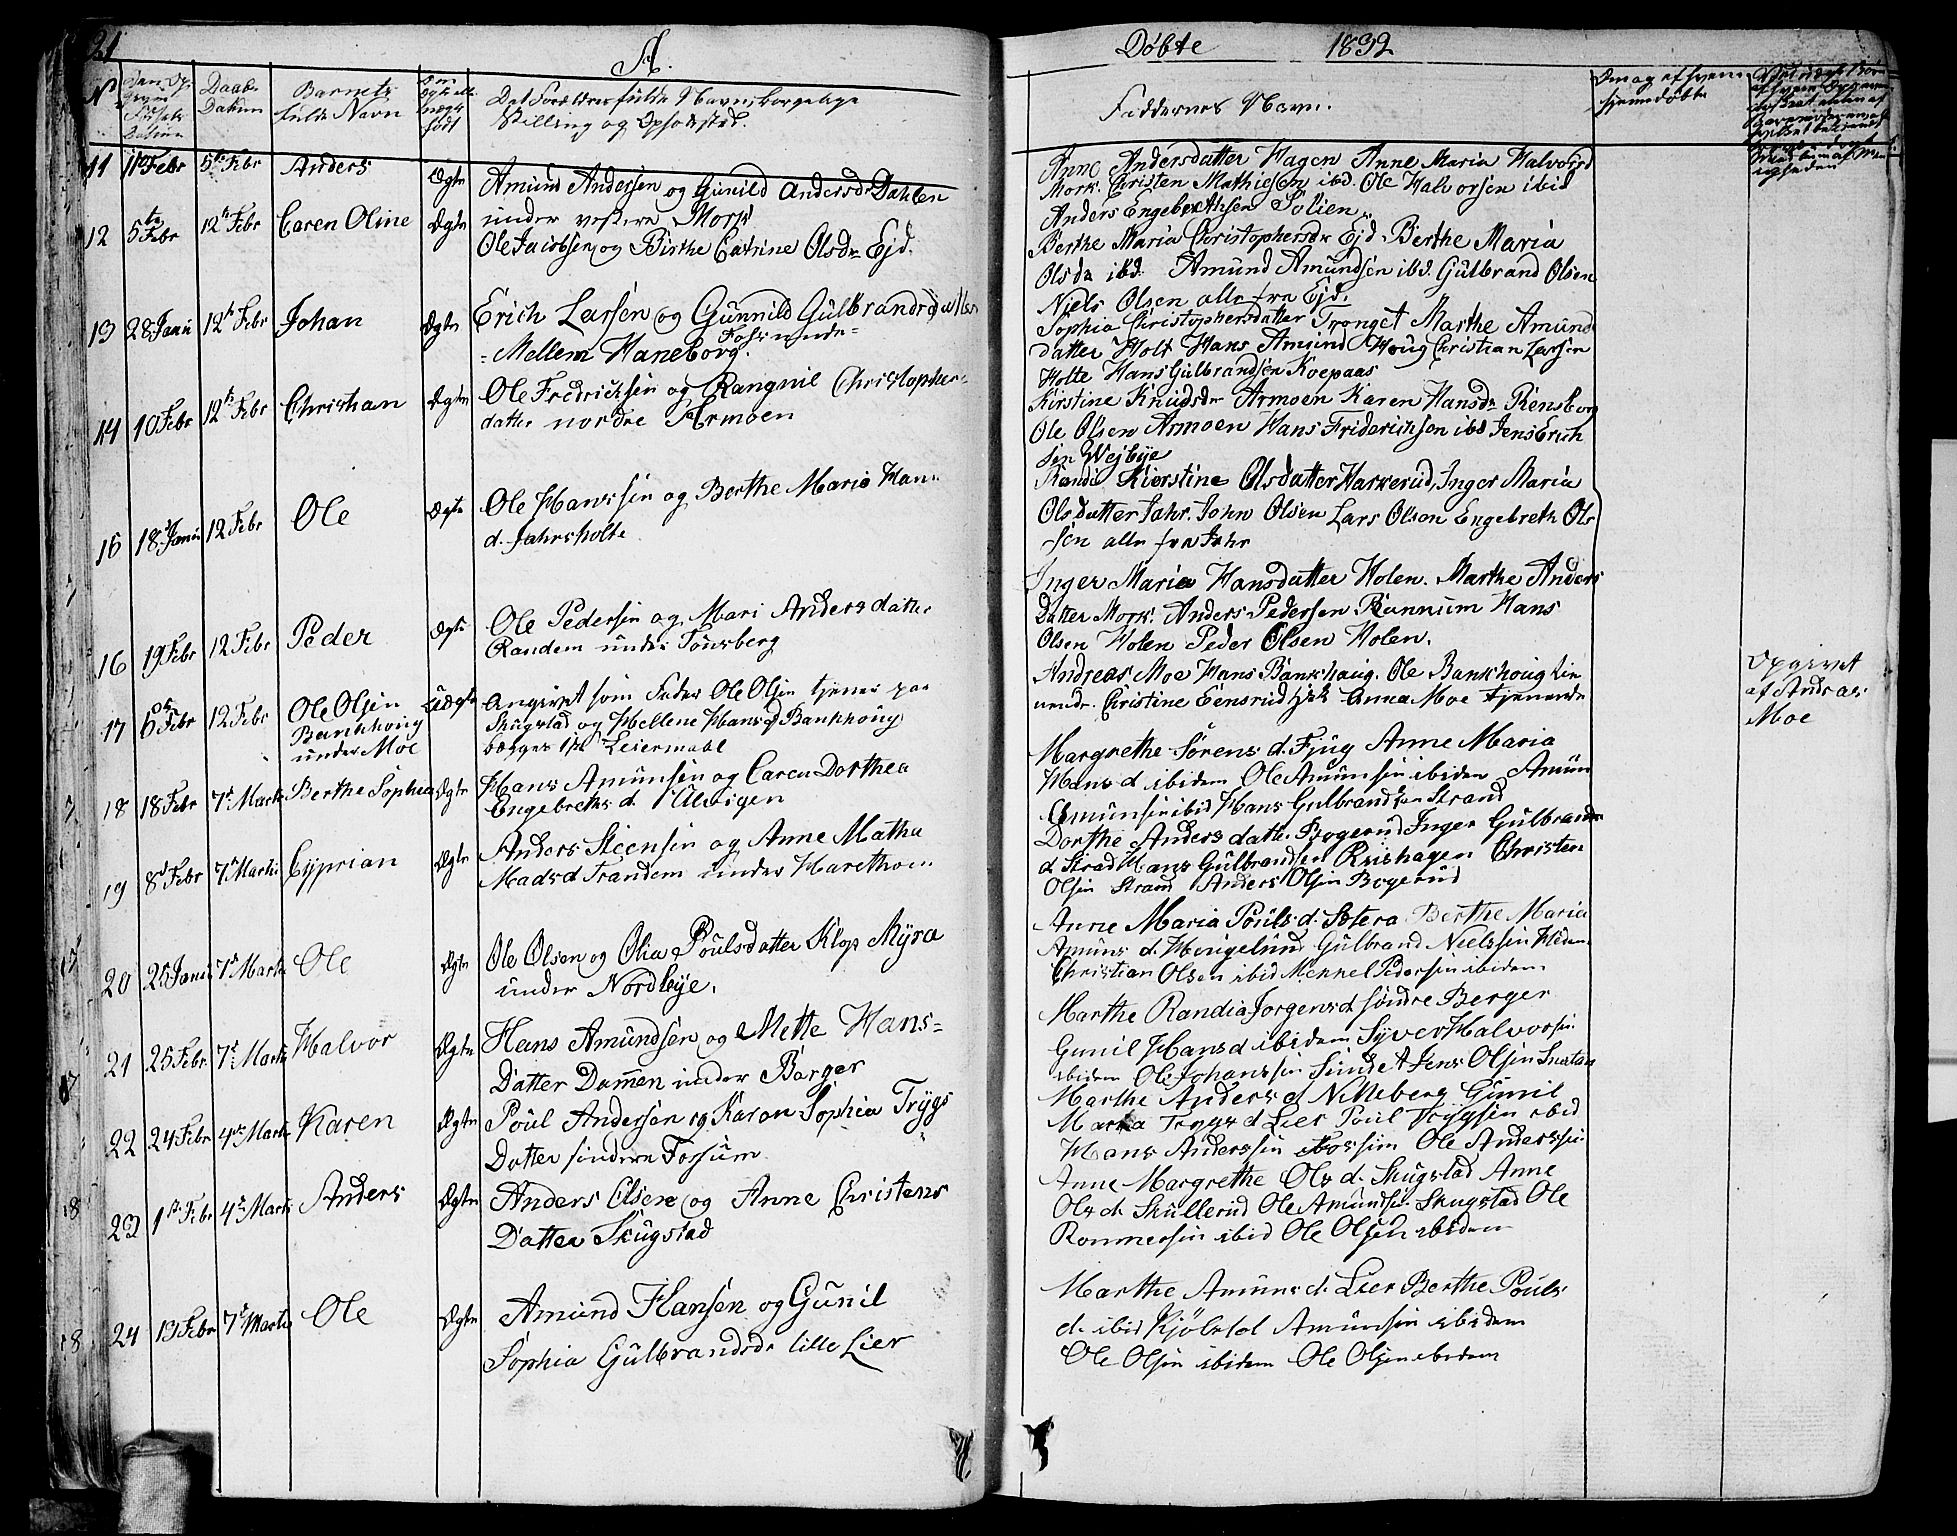 21
A.
Døbte 1832
Daabs Datum
Barnets fulde Navn
Faddernes Navn.
11 11te Febr 5te Febr Anders Ægte Amund Andersen og Gunild Andersdr Dahlen
under vestere Mork
Anne Andersdatter Hagen Anne Maria Halvorsd
Mork. Christen Mathiesen ibd. Ole Halvorsen ibid
Anders Engebrethsen Solien
12 5te Febr 12te Febr Caren Oline Ægte
Ole Jacobsen og Birthe Catrine Olsdr Ejd.
Berthe Maria Christophersdr Ejd Berthe Maria
Olsdr ibd. Amund Amundsen ibd. Gulbrand Olsen
Niels Olsen alle fra Ejd.
13 28 Janu 12te Febr Johan Ægte Erich Larsen og Gunnild Gulbrandsdatter
Mellem Haneborg.
Sophia Christophersdatter Tronget Marthe Amund
datter Holt Hans Amund Houg Christian Larsen
Holte Hans Gulbrandsen Koepaas
14 10 Febr 12te Febr Christian Ægte Ole Fredrichsen og Rangnil Christopher-
datter nordre Armoen
Kirstine Knudsdr Armoen Karen Hansdr Rensborg
Ole Olsen Armoen Hans Friderichsen ibd Jens Erich
sen Wejbye
16 18 Janu 12 Febr Ole Ægte Ole Hanssen og Berthe Maria Han
d. Jahrsholte
Randi Kierstine Olsdatter Harkerud, Inger Maria
Olsdatter Jahr. John Olsen Lars Olsen Engebreth Ols
sen alle fra Jahr
16 19 Febr 12 Febr Peder Ægte Ole Pedersen og Mari Andersdatter
Randem under Tonsberg
Inger Maria Hansdatter Holen. Marthe Anders
Datter Mork. Anders Pedersen Rannum Hans
Olsen Holen Peder Olsen Holen.
17 6 Febr 12 Febr Ole Olsen Uægte Angivet som Fader Ole Olsen tjener paa
Bankhoug
under Moe
Skugstad og Hellene Hansd Bankhoug
begges 1ste Leiermaal
Andreas Moe Hans Bankhaug. Ole Bankhoug tie
nende. Christine Eensrud Anna Moe tjenende
Opgivet
af Andreas
Moe
18 18 Febr 7de Marti Berthe Sophia Ægte Hans Amunsen og Caren Dorthea
Engebreths d.
Margrethe Sörens d. Fjug Anne Maria
Hans d ibidem Ole Amunsen ibidem Amun
Amunsen ibid Hans Gulbrandsen Strand
19 8d Febr 7de Marti Cyprian Ægte Anders Steensen og Anne Mathea
Mads d Trandem under Harethoen
Dorthe Andersdatter Bogerud Inger Gulbrands
d. Strad Hans Gulbrandsen Riishagen Christen
Olsen Strand Anders Olsen Bogerud
20 25 Janu 7de Marti Ole Ægte Ole Olsen og Olia Poulsdatter Klop Myra
under Nordbye.
Anne Maria Pouls d. Sotera Berthe Maria
Amuns d. Hengelund Gulbrand Nielssen
Christian Olsen ibid Mekkel Pedersen ibidem
21 25 Febr 7de Marti Halvor Ægte Hans Amundsen og Mette Hans=
Datter Dammen under Barger
Marthe Randia Jorgens d söndre Berger
Gunil Hans d ibidem Syver Halvorsen
ibidem Ole Johanssen Sundet Jens Olsen
22 24 Febr 4de Marti Karen Ægte Poul Andersen og Karen Sophia Trygs
Datter söndere Fossum
Marthe Anders d Nilleberg Gunil
Maria Trygs d Lier Poul Trygsen ibid
Hans Anderssen Fossum Ole Anderssen
23 1ste Febr 4de Marti Anders Ægte Anders Olsen og Anne Christens
Datter Skugstad
Anne Margrethe Ols d. Skugstad Anne
Ols d. Skullerud Ole Amundsen Skugstad Ole
Rommersen ibid Ole Olsen ibidem
24 13 Febr 7de Marti Ole Ægte Amund Hansen og Gunil
Sophia Gulbrandsdr lille Lier
Marthe Amuns d. Lier Berthe Pouls
d. ibid Kjölstol Amunsen ibidem
Ole Olsen ibidem Ole Olsen ibidem